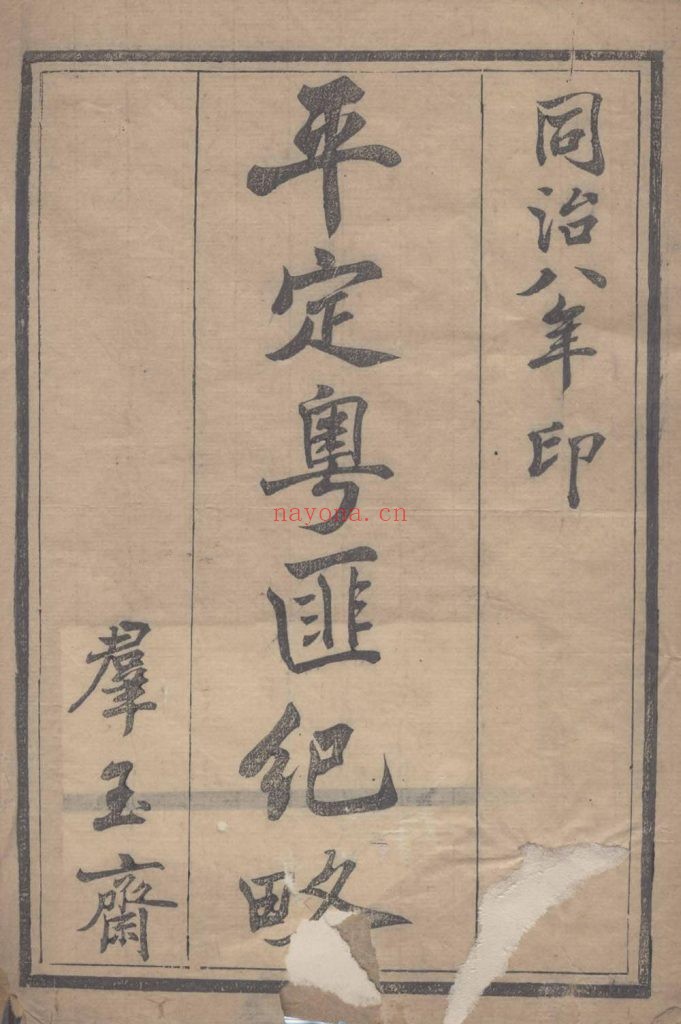 同治八年印
平定粵匪紀略
羣玉齋
nayona.cn